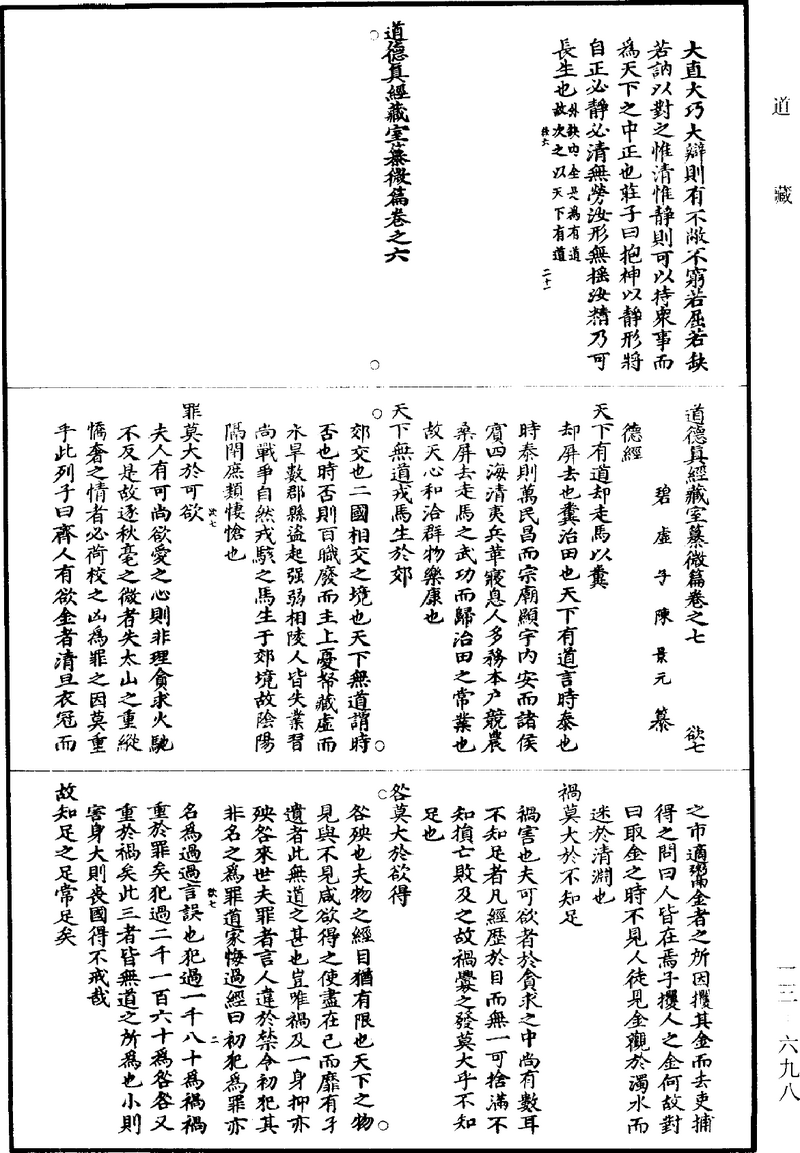 道藏
大直大巧大辯則有不敝不窮若屈若缺
若訥以對之惟清惟靜則可以待衆事而
為天下之中正也莊子曰抱神以靜形將
自正必靜必清無勞汝形無摇汝精乃可
長生也外缺內全是為有道故次之以天下有道
二十一
道德真經藏室纂微篇卷之六
道德真經藏室纂微篇卷之七
欲七
碧虛子陳景元纂
德經
天下有道却走馬以糞
却屏去也糞治田也天下有道言時泰也
時泰則萬民昌而宗廟顯宇内安而諸侯
賓四海清夷兵革寢息人多務本户競農
桑屏去走馬之武功而歸治田之常業也
故天心和洽群物樂康也
天下無道戎馬生於郊
郊交也二國相交之境也天下無道謂時
否也時否則百職廢而主上憂帑藏虛而
水旱數郡縣盜起强弱相陵人皆失業習
尚戰爭自然戎駭之馬生于郊境故陰陽
隔閉庶類悽愴也
欲七
罪莫大於可欲
夫人有可尚欲愛之心則非理貪求火馳
不反是故逐秋毫之微者失太山之重縱
憍奢之情者必荷校之凶為罪之因莫重
乎此列子曰齊人有欲金者清旦衣冠而
之市適鬻金者之所因攫其金而去吏捕
得之問曰人皆在焉子攫人之金何故對
曰取金之時不見人徒見金觀於濁水而
迷於清淵也
禍莫大於不知足
禍害也夫可欲者於貪求之中尚有數耳
不知足者凡經歷於目而無一可捨滿不
知損亡敗及之故禍釁之發莫大乎不知
足也
咎莫大於欲得
咎殃也夫物之經目猶有限也天下之物
見與不見咸欲得之使盡在己而靡有孑
遺者此無道之甚也豈唯禍及一身抑亦
殃咎來世夫罪者言人違於禁令初犯其
非名之為罪道家悔過經曰初犯為罪亦
欲七
二
名為過過言誤也犯過一千八十為禍禍
重於罪矣犯過二千一百六十為咎咎又
重於禍矣此三者皆無道之所為也小則
害身大則喪國得不戒哉
故知足之足常足矣
一三六九八